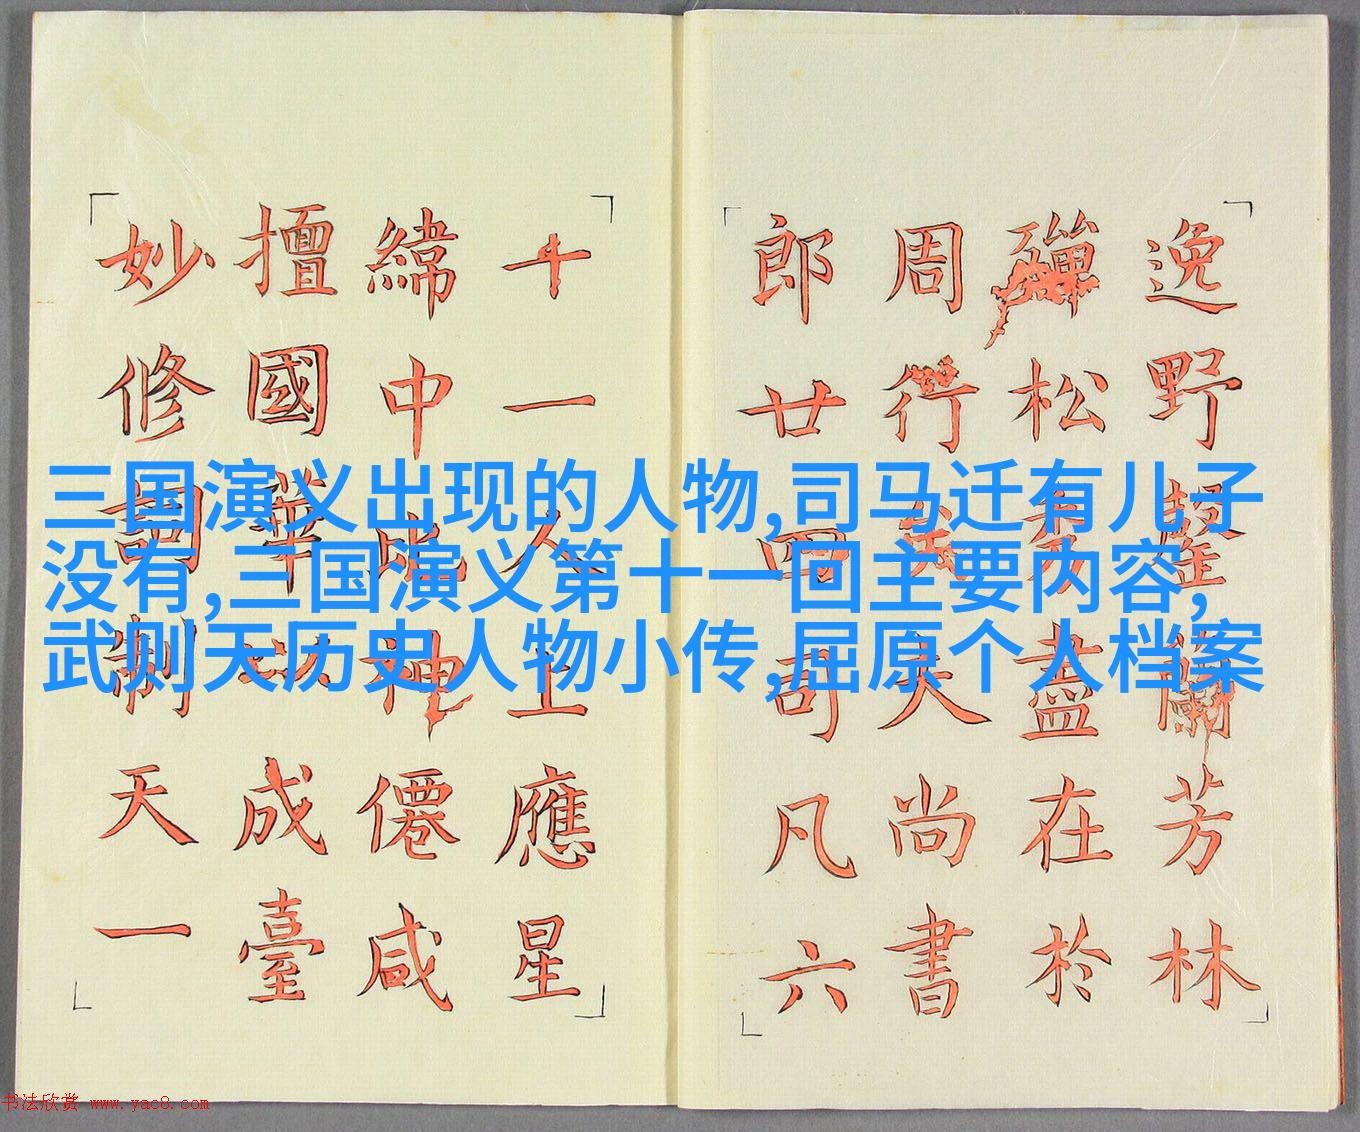 逸野芳林
松盡在於
周行大尚書
郎廿四司凡六
十一人上應星
緯中比神僊咸
擅國華成臺
妙修詞制天一
三国演义出现的人物,司马迁有儿子
没有,三国演义第十一回主要内容,
武则天历史人物小传,屈原个人档案
书法欣赏 www.yac8.com